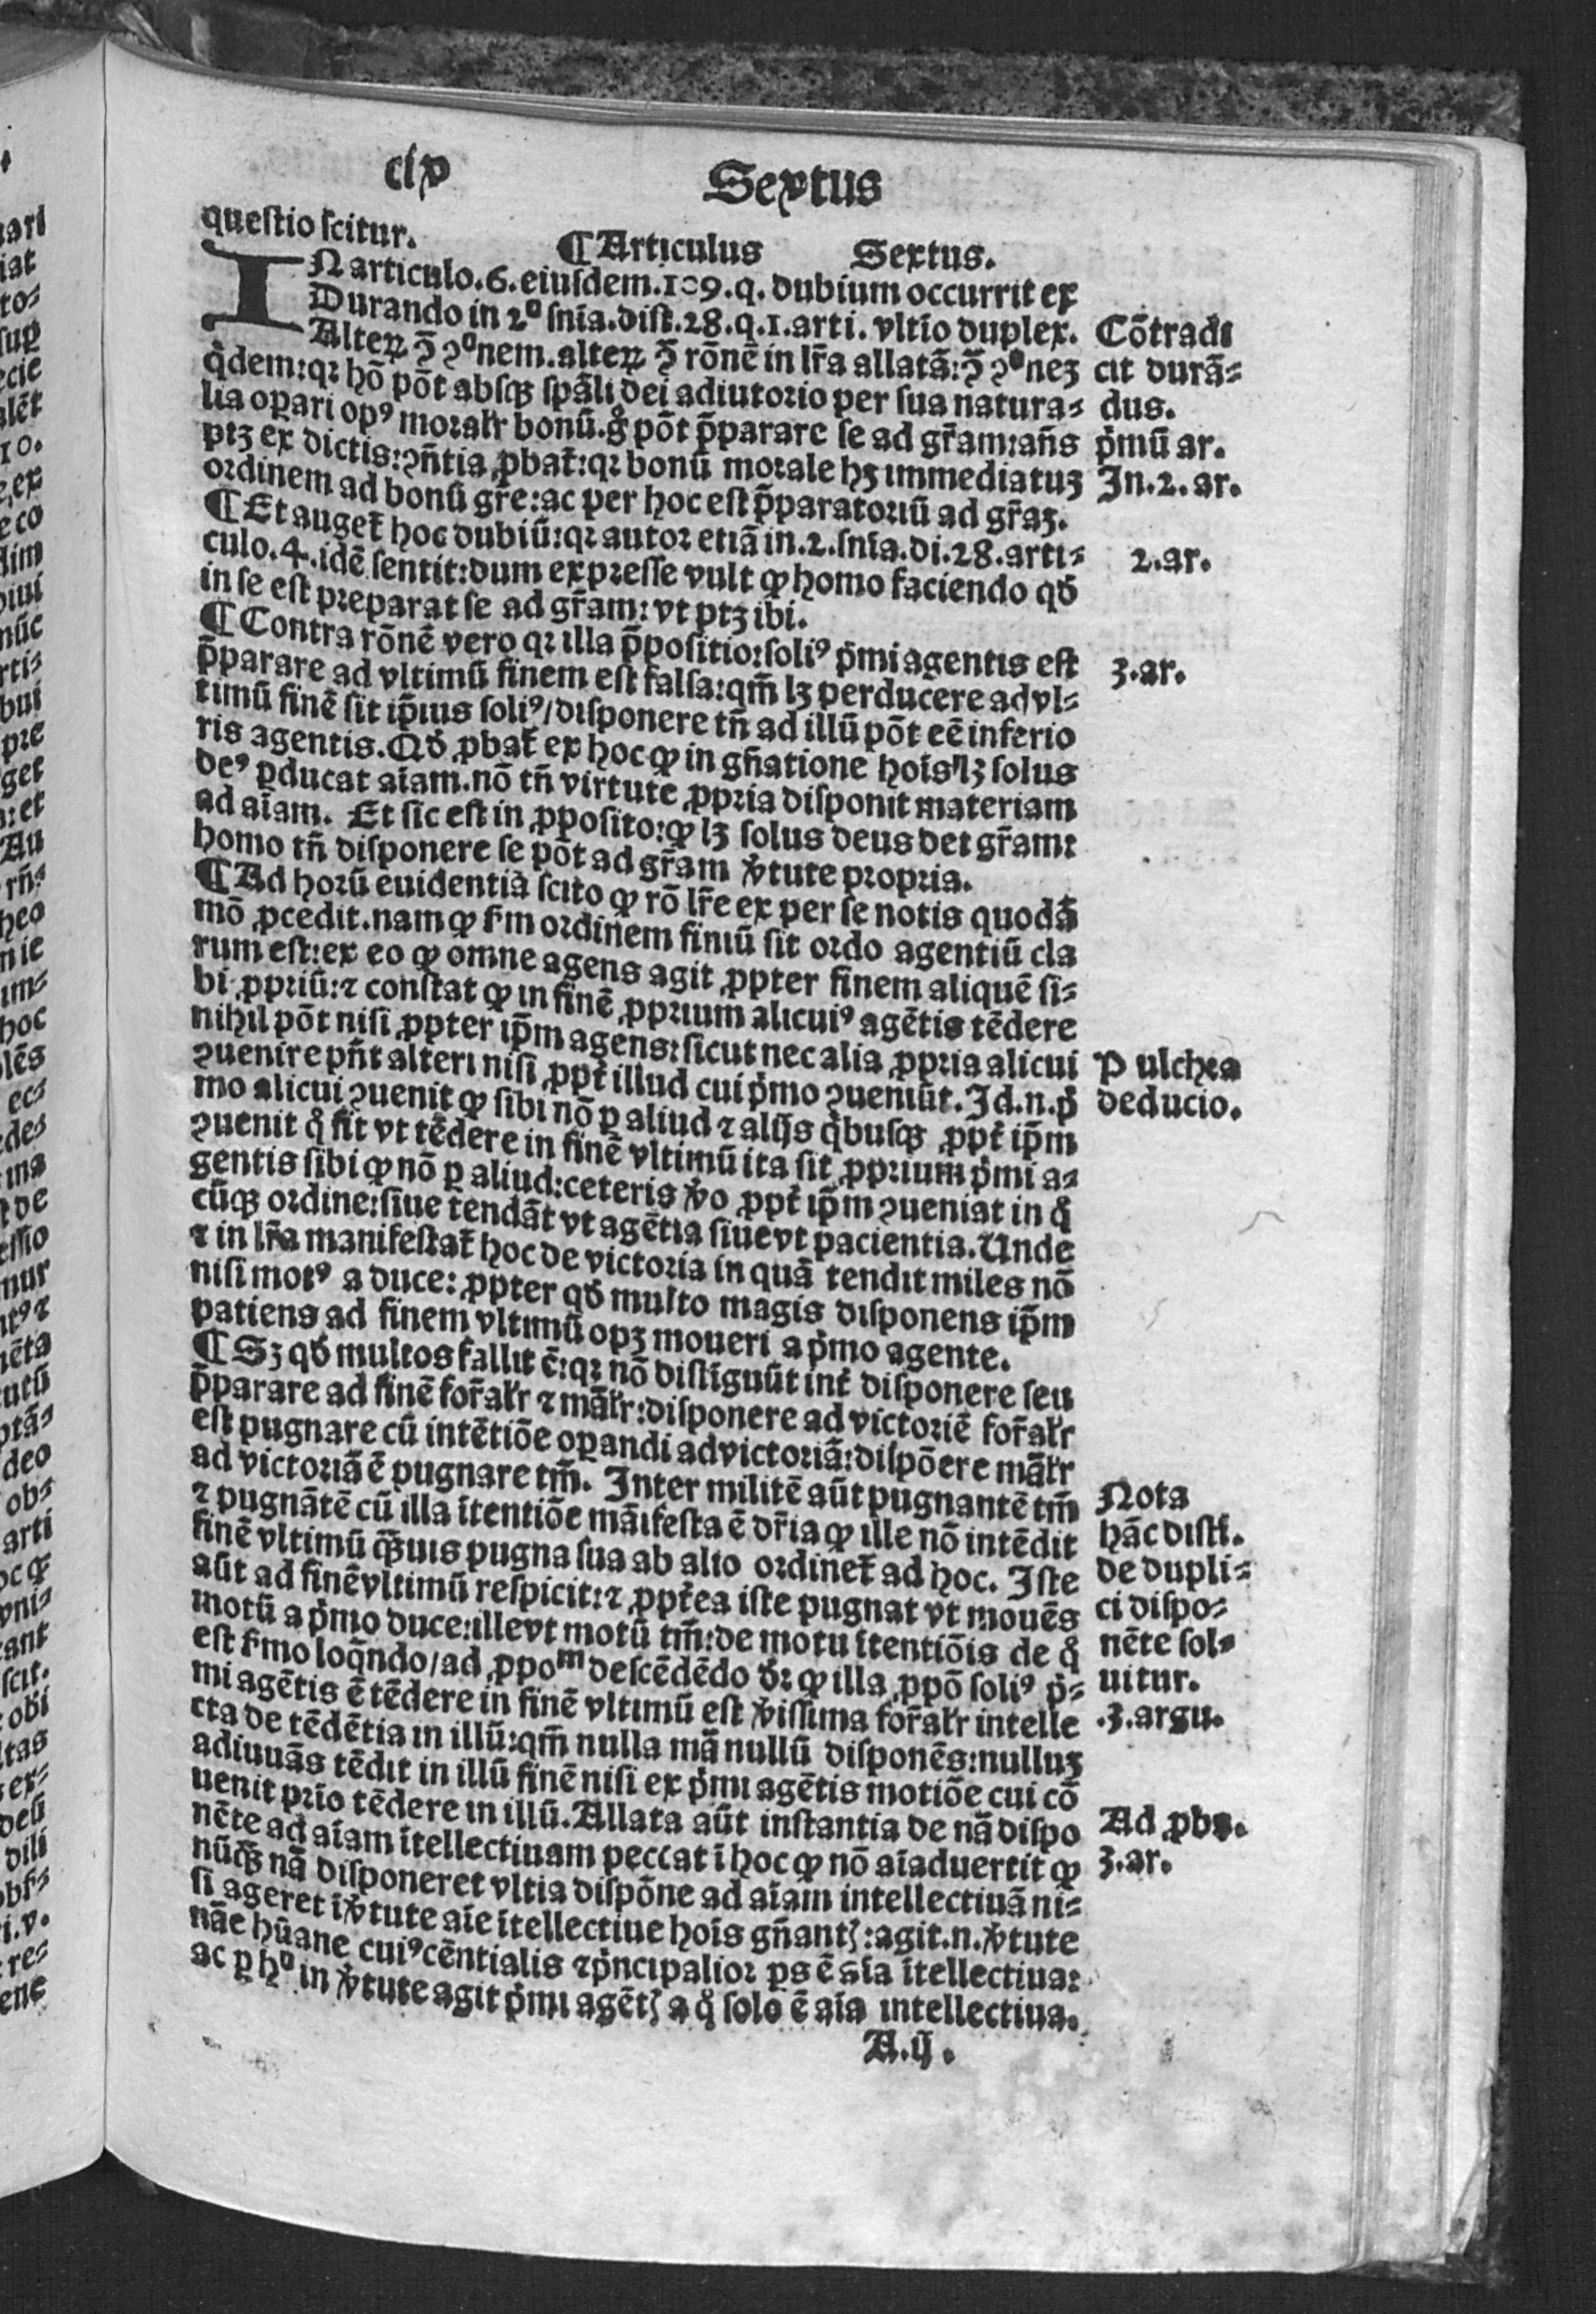 clx Sextus
questio scitur.
¶ Articulus Sextus.
IN articulo.6.eiusdem.109.q.dubium occurrit ex
Durando in 2º sñia.dist.28.q.1.arti.vltio duplex.
Alteꝝ ꝯ̄ ꝯºnem.alteꝝ ꝯ̄ rōnē in lr̄a allatā:ꝯ̄ ꝯºneꝫ
q̇dem:qꝛ hō pōt absqꝫ spāli dei adiutorio per sua natura⸗
lia oꝑari opꝰ moralr̄ bonū.gͦ pōt p̄parare se ad gr̄am:añs
ptꝫ ex dictis:ꝯñtia ꝓbat̄:qꝛ bonū morale hꝫ immediatuꝫ
ordinem ad bonū gr̄e:ac per hoc est p̄paratoriū ad gr̄aꝫ.
¶ Et auget̄ hoc dubiū:qꝛ autor etiā in.2.sñia.di.28.arti⸗
culo.4.idē sentit:dum expresse vult ꝙ homo faciendo qđ
in se est preparat se ad gr̄am:vt ptꝫ ibi.
¶ Contra rōnē vero qꝛ illa p̄positio:soliꝰ p̍mi agentis est
p̄parare ad vltimū finem est falsa:qm̄ lꝫ perducere ad vl⸗
timū finē sit ip̄ius soliꝰ/disponere tñ ad illū pōt eē inferio
ris agentis.Qđ ꝓbat̄ ex hoc ꝙ in gñatione hoīs lꝫ solus
deꝰ ꝓducat aīam.nō tñ virtute ꝓpria disponit materiam
ad aīam. Et sic est in ꝓposito:ꝙ lꝫ solus deus det gr̄am:
homo tñ disponere se pōt ad gr̄am v̓tute propria.
¶ Ad horū euidentiā scito ꝙ rō lr̄e ex per se notis quodā
mō ꝓcedit.nam ꝙ fm ordinem finiū sit ordo agentiū cla
rum est:ex eo ꝙ omne agens agit ꝓpter finem aliquē si⸗
bi ꝓpriū:⁊ constat ꝙ in finē ꝓprium alicuiꝰ agētis tēdere
nihil pōt nisi ꝓpter ip̄m agens:sicut nec alia ꝓpria alicui
ꝯuenire pñt alteri nisi ꝓpt̄ illud cui p̍mo ꝯueniūt.Id.n.p̍
mo alicui ꝯuenit ꝙ sibi nō ꝑ aliud ⁊ alijs q̍busqꝫ ꝓpt̄ ip̄m
ꝯuenit q̊ fit vt tēdere in finē vltimū ita sit ꝓprium p̍mi a⸗
gentis sibi ꝙ nō ꝑ aliud:ceteris v̓o ꝓpt̄ ip̄m ꝯueniat in q̊
cūqꝫ ordine:siue tendāt vt agētia siue vt pacientia.Unde
⁊ in lr̄a manifestat̄ hoc de victoria in quā tendit miles nō
nisi motꝰ a duce:ꝓpter qđ multo magis disponens ip̄m
patiens ad finem vltimū opꝫ moueri a p̍mo agente.
¶ Sꝫ qđ multos fallit ē:qꝛ nō distiguūt int̄ disponere seu
p̄parare ad finē for̄alr̄ ⁊ māl̄r:disponere ad victoriē for̄alr̄
est pugnare cū intētiōe oꝑandi ad victoriā:dispōere māl̄r
ad victoriā ē pugnare tm̄. Inter militē aūt pugnantē tm̄
⁊ pugnātē cū illa ītentiōe māifesta ē dr̄ia ꝙ ille nō intēdit
finē vltimū qꝫ̄uis pugna sua ab alio ordinet̄ ad hoc. Iste
aūt ad finē vltimū respicit:⁊ ꝓpt̄ea iste pugnat vt mouēs
motū a p̍mo duce:ille vt motū tm̄:de motu ītentiōis de q̊
est fmo loq̄ndo/ad ꝓpoᵐ descēdēdo đꝛ ꝙ illa ꝓpō soliꝰ p̍⸗
mi agētis ē tēdere in finē vltimū est v̓issima for̄alr̄ intelle
cta de tēdētia in illū:qm̄ nulla mā nullū disponēs:nulluꝫ
adiuuās tēdit in illū finē nisi ex p̍mi agētis motiōe cui cō
uenit prio tēdere in illū.Allata aūt instantia de nā dispo
nēte ad aīam ītellectiuam peccat ī hoc ꝙ nō aīaduertit ꝙ
nūqꝫ̄ nā disponeret vltia dispōne ad aīam intellectiuā ni⸗
si ageret ī v̓tute aīe ītellectiue hoīs gñantꝭ:agit.n.v̓tute
nāe hūane cuiꝰcēntialis ⁊p̍ncipalior ps ē aīa ītellectiua:
ac ꝑ hº in v̓tute agit p̍mi agētꝭ a q̊ solo ē aīa intellectiua.
A.ij.
Cōtradi
cit durā⸗
dus.
p̍mū ar.
In.2.ar.
2.ar.
3.ar.
Pulchra
deducio.
Nota
hāc dist̄.
de dupli⸗
ci dispo⸗
nēte sol⸗
uitur.
.3.argu.
Ad ꝓbꝫ.
3.ar.